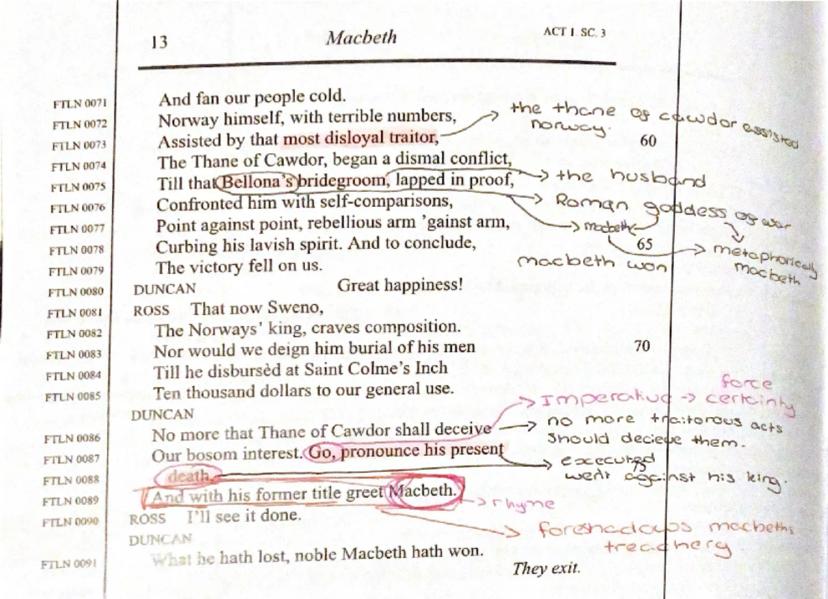 13 Macbeth ACT 1. SC. 3
FTLN 0071 And fan our people cold.
FTLN 0072 Norway himself, with terrible numbers,
the thane of cawdor assisted
norway.
FTLN 0073 Assisted by that most disloyal traitor, 60
FTLN 0074 The Thane of Cawdor, began a dismal conflict,
FTLN 0075 Till that Bellona's bridegroom, lapped in proof,
the husband
FTLN 0076 Confronted him with self-comparisons,
Roman goddess of war
FTLN 0077 Point against point, rebellious arm 'gainst arm,
macbeth
FTLN 0078 Curbing his lavish spirit. And to conclude, 65
metaphorically
macbeth
FTLN 0079 The victory fell on us.
macbeth won
FTLN 0080 DUNCAN Great happiness!
FTLN 0081 ROSS That now Sweno,
FTLN 0082 The Norways' king, craves composition.
FTLN 0083 Nor would we deign him burial of his men 70
FTLN 0084 Till he disbursèd at Saint Colme's Inch
FTLN 0085 Ten thousand dollars to our general use.
Imperative → force
certainty
DUNCAN
FTLN 0086 No more that Thane of Cawdor shall deceive
no more traitorous acts
should decieve them.
FTLN 0087 Our bosom interest. Go, pronounce his present
executed
went against his king.
75
FTLN 0088 death,
FTLN 0089 And with his former title greet Macbeth.
rhyme
FTLN 0090 ROSS I'll see it done.
foreshadows macbeths
treachery
DUNCAN
FTLN 0091 What he hath lost, noble Macbeth hath won.
They exit.